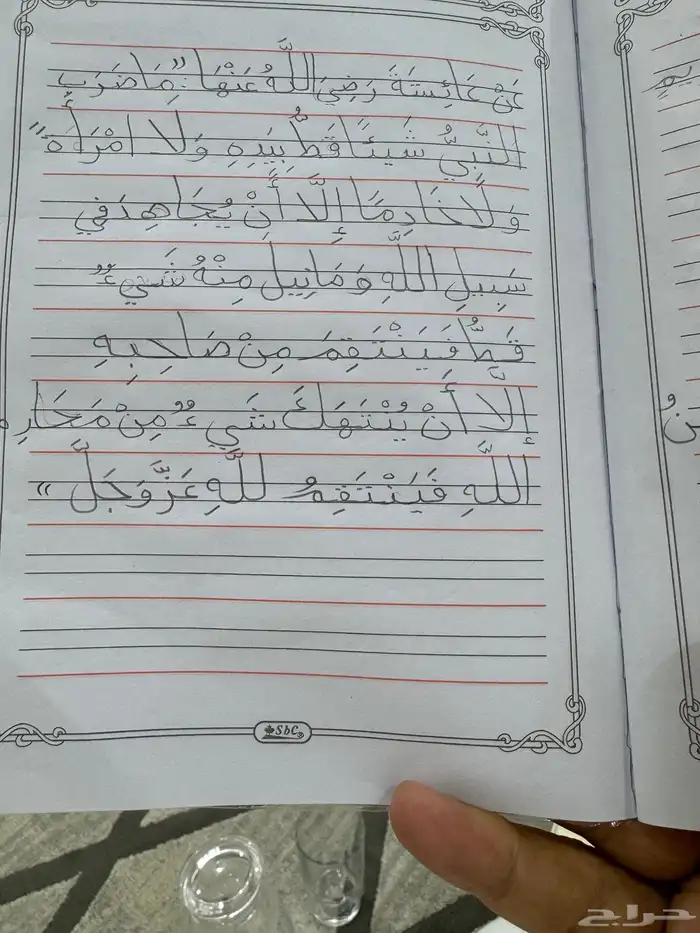 عَنْ عَائِشَةَ رَضِيَ اللَّهُ عَنْهَا: "مَا ضَرَبَ
النَّبِيُّ شَيئًا قَطُّ بِيَدِهِ وَلَا امْرَأَةً"
وَلَا خَادِمًا إِلَّا أَنْ يُجَاهِدَ فِي
سَبِيلِ اللَّهِ وَمَا نِيلَ مِنْهُ شَيءٌ
قَطُّ فَيَنْتَقِمَ مِنْ صَاحِبِهِ
إِلَّا أَنْ يُنْتَهَكَ شَيءٌ مِنْ مَحَارِمِ
اللَّهِ فَيَنْتَقِمُ لِلَّهِ عَزَّ وَجَلَّ »
SbC
حراج